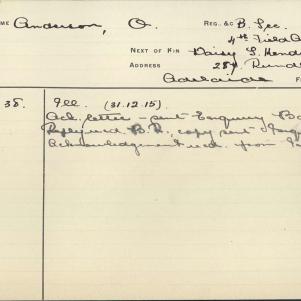 ME Anderson, O. REG. &C B. Sec.
4th Field A
NEXT OF KIN Daisy L. Hend
ADDRESS 284 Rundl
Adelaide F
38. Ill. (31.12.15).
Ack. letter - sent Enquiry B
Reply recd. B.R., copy sent
Acknowledgement recd. from